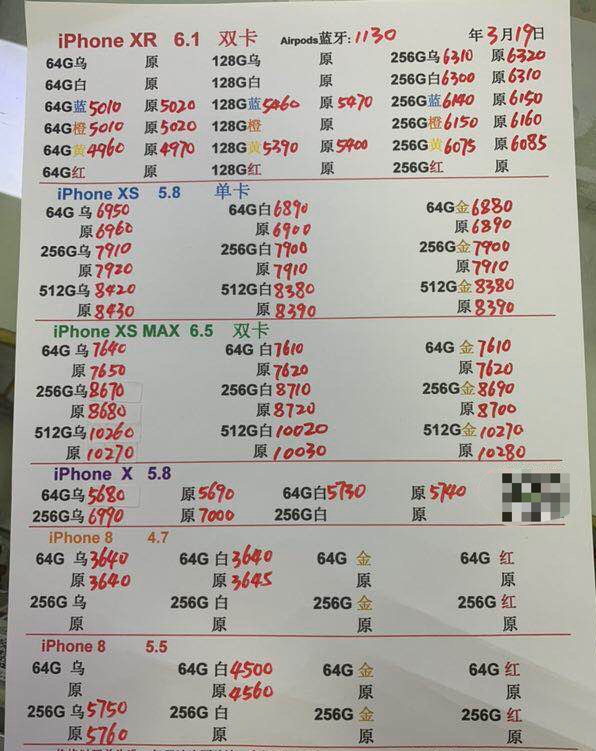 iPhone XR 6.1 双卡 Airpods蓝牙:1130 年3月19日
64G乌 原 128G乌 原 256G乌6310 原6320
64G白 原 128G白 原 256G白6300 原6310
64G蓝5010 原5020 128G蓝5460 原5470 256G蓝6140 原6150
64G橙5010 原5020 128G橙 原 256G橙6150 原6160
64G黄4960 原4970 128G黄5390 原5400 256G黄6075 原6085
64G红 原 128G红 原 256G红 原
iPhone XS 5.8 单卡
64G 乌6950 64G白6890 64G金6880
原6960 原6900 原6890
256G乌7910 256G白7900 256G金7900
原7920 原7910 原7910
512G乌8420 512G白8380 512G金8380
原8430 原8390 原8390
iPhone XS MAX 6.5 双卡
64G 乌7640 64G 白7610 64G 金7610
原7650 原7620 原7620
256G乌8670 256G白8710 256G金8690
原8680 原8720 原8700
512G乌10260 512G白10020 512G金10270
原10270 原10030 原10280
iPhone X 5.8
64G乌5680 原5690 64G白5730 原5740
256G乌6990 原7000 256G白 原
iPhone 8 4.7
64G 乌3640 64G 白3640 64G 金 64G 红
原3640 原3645 原 原
256G乌 256G 白 256G 金 256G 红
原 原 原 原
iPhone 8 5.5
64G 乌 64G 白4500 64G 金 64G 红
原 原4560 原 原
256G 乌5750 256G 白 256G 金 256G 红
原5760 原 原 原